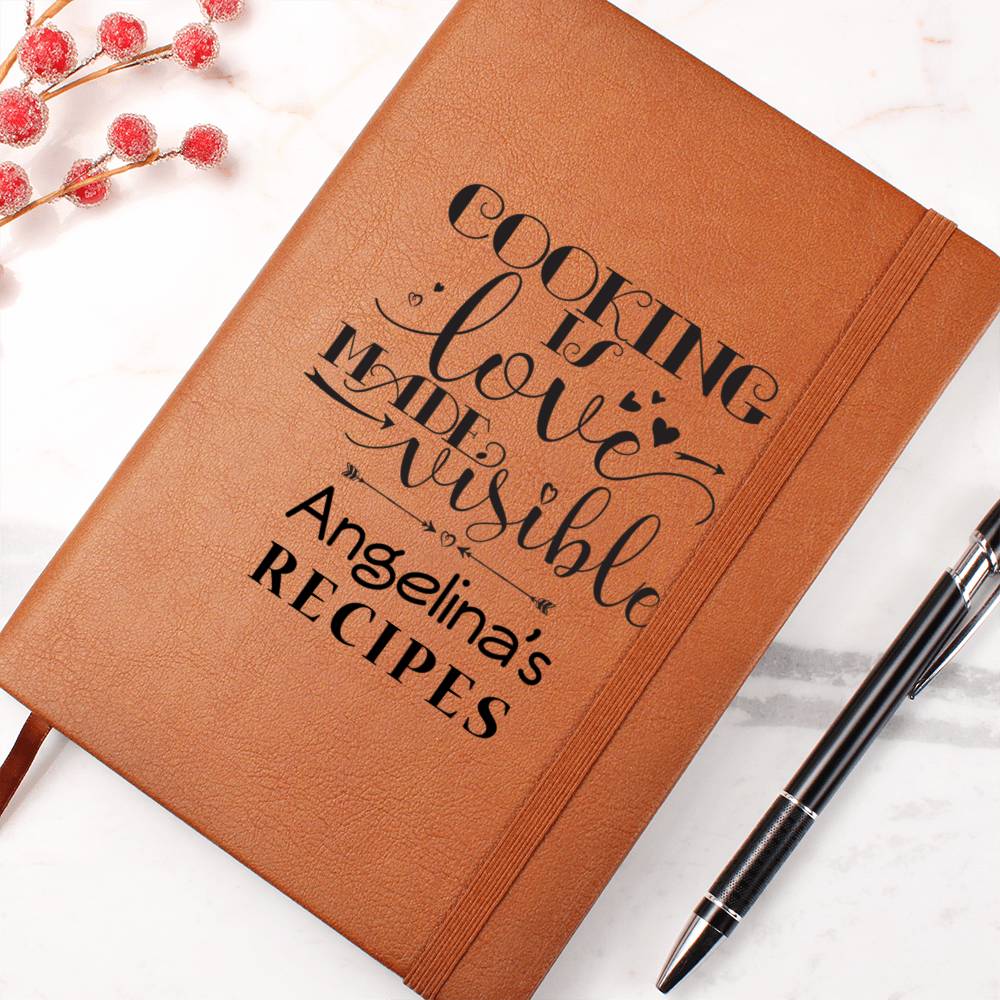 COOKING
IS
love
MADE
visible
Angelina's
RECIPES